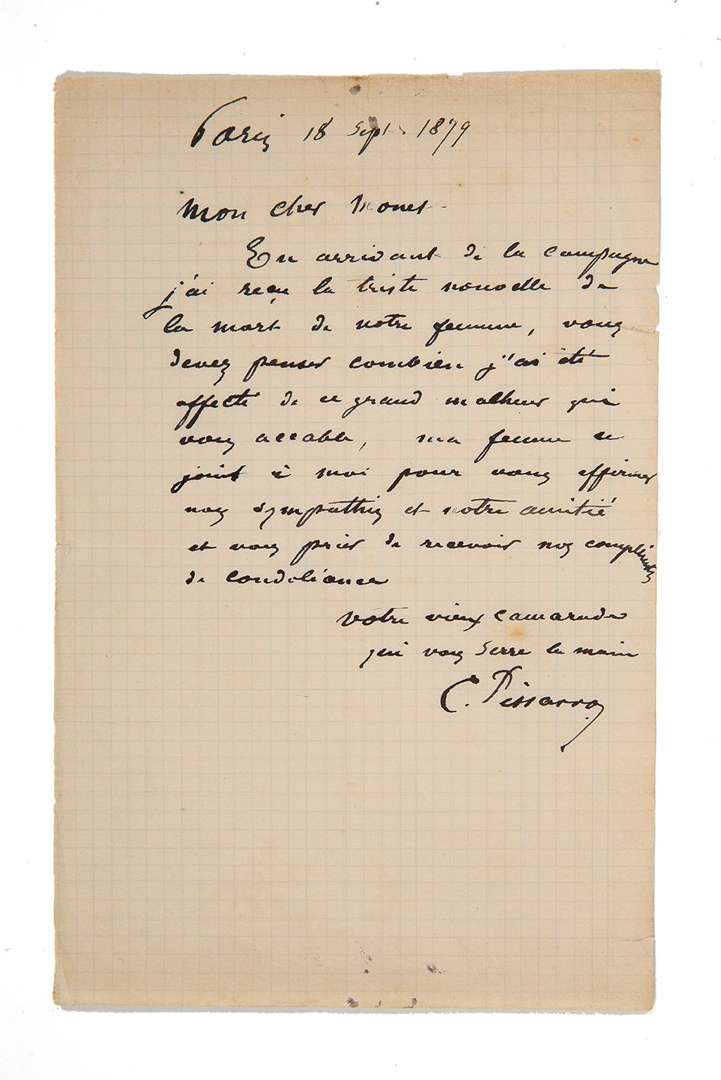 Paris 18 Sept 1879
Mon cher Monet
En arrivant de la campagne
j'ai reçu la triste nouvelle de
la mort de votre femme, vous
devez penser combien j'ai été
affecté de ce grand malheur qui
vous accable, ma femme se
joint à moi pour vous affirmer
nos sympathies et notre amitié
et vous prier de recevoir nos compliments
de condoléance
votre vieux camarade
qui vous serre la main
C. Pissarro